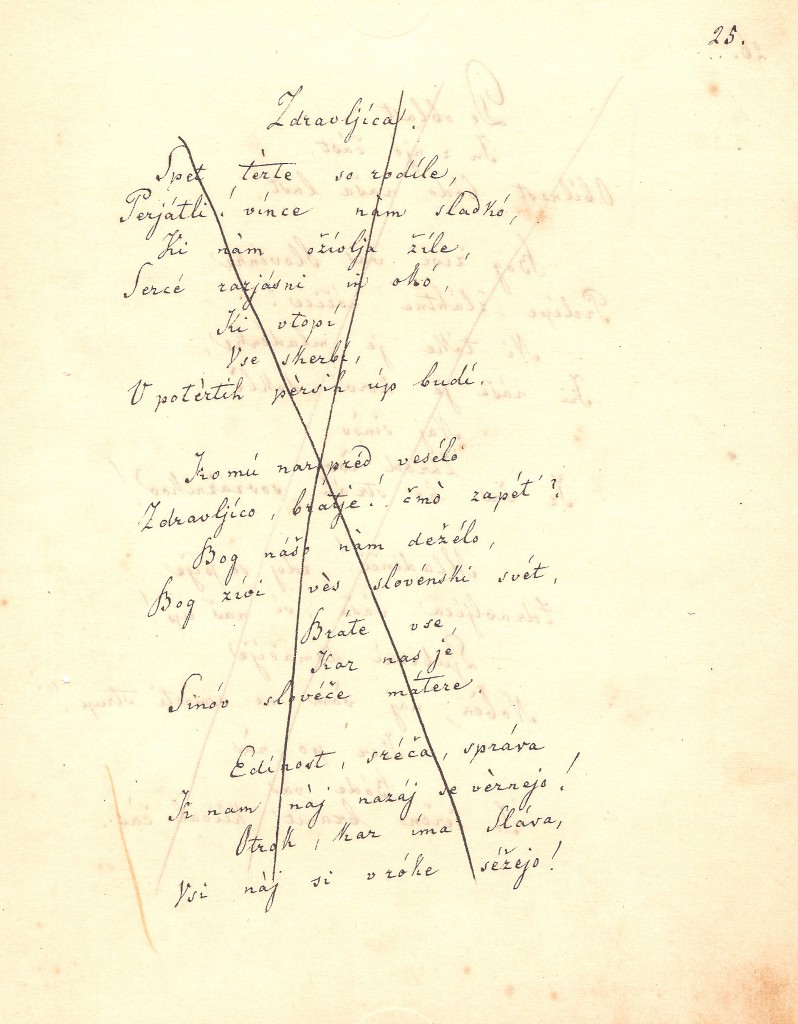 25.
Zdravljíca.
Spet tèrte so rodíle,
Perjátli! vínce nàm sladkó,
Ki nàm ožívlja žíle,
Sercé razjásni in okó,
Ki vtopí
Vse skerbí,
V potèrtih pèrsih úp budí.
Komú narpréd vesélo
Zdravljíco, brátje! čmò zapét'?
Bog nášo nàm dežélo,
Bog živi vès slovénski svét,
Bráte vse,
Kar nas je
Sinóv slovéče mátere.
Edínost, sréča, správa
K nam nàj nazáj se vèrnejo!
Otrok, kar íma Sláva,
Vsi nàj si v róke séžejo!